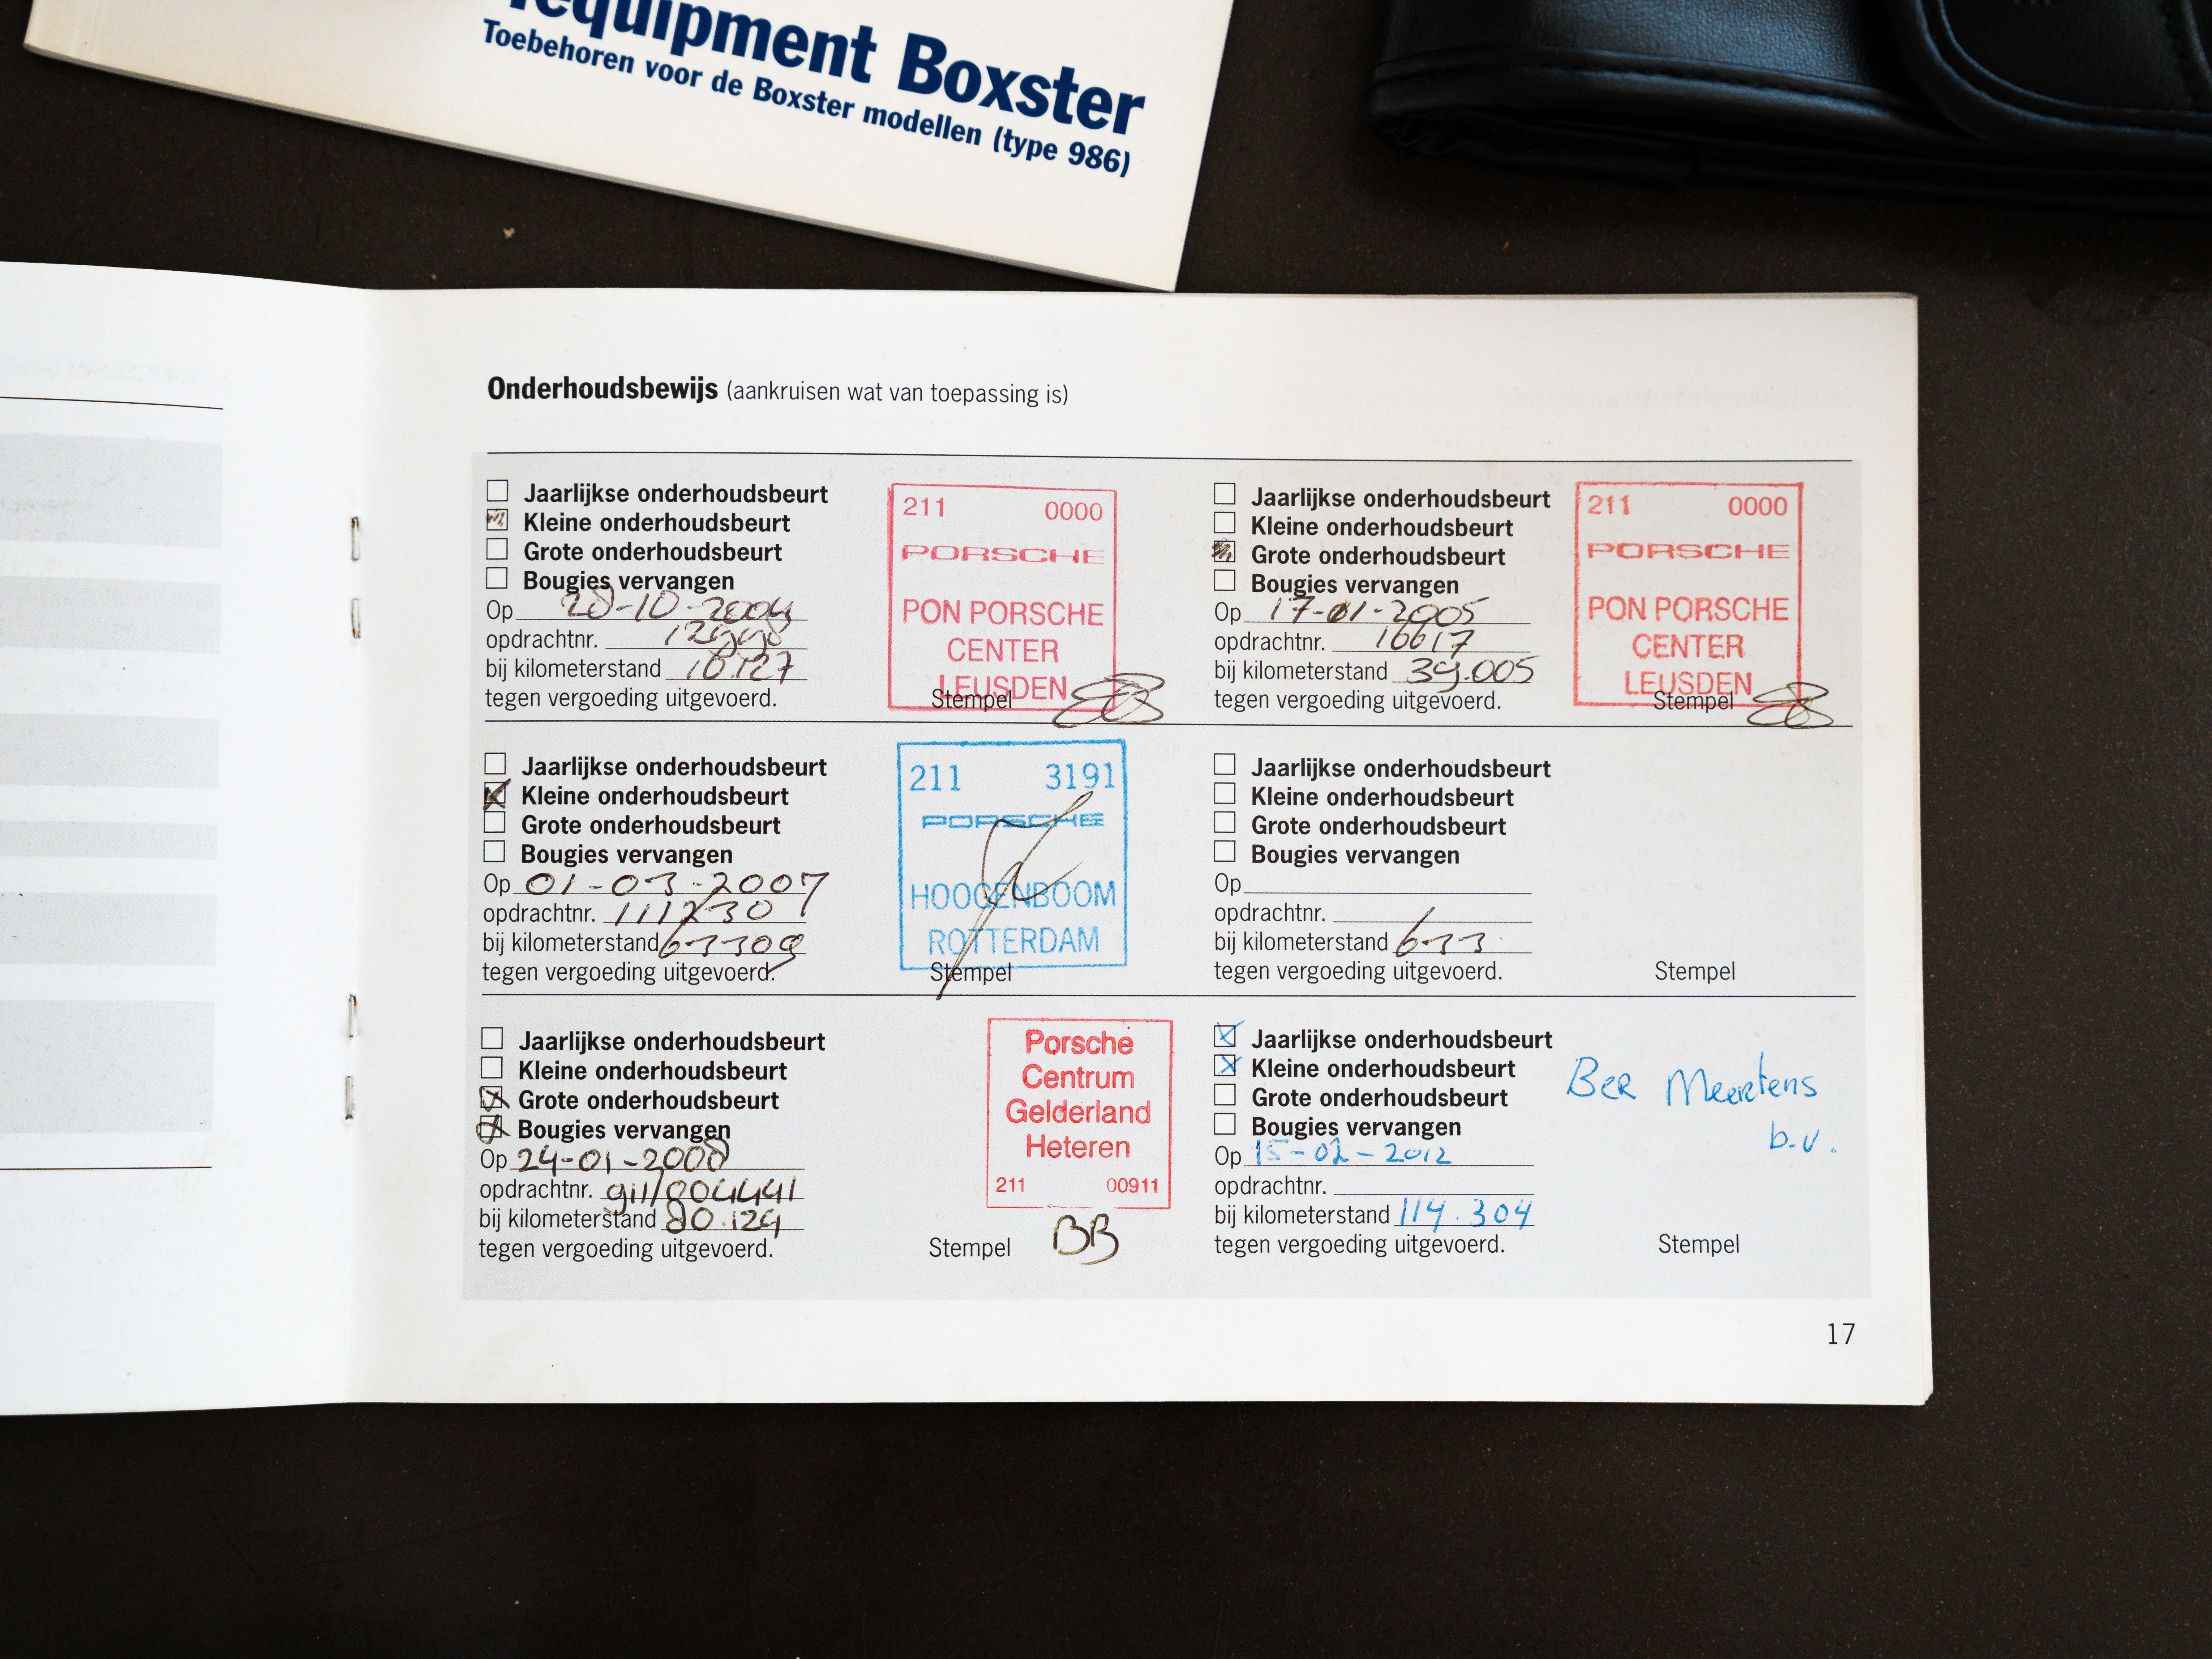 equipment Boxster
Toebehoren voor de Boxster modellen (type 986)
Onderhoudsbewijs (aankruisen wat van toepassing is)
Jaarlijkse onderhoudsbeurt
Kleine onderhoudsbeurt
Grote onderhoudsbeurt
Bougies vervangen
Op 28-10-2004
opdrachtnr.
bij kilometerstand
tegen vergoeding uitgevoerd.
211 0000
PORSCHE
PON PORSCHE
CENTER
LEUSDEN
Stempel
Jaarlijkse onderhoudsbeurt
Kleine onderhoudsbeurt
Grote onderhoudsbeurt
Bougies vervangen
Op 17-01-2005
opdrachtnr. 16617
bij kilometerstand 39.005
tegen vergoeding uitgevoerd.
211 0000
PORSCHE
PON PORSCHE
CENTER
LEUSDEN
Stempel
Jaarlijkse onderhoudsbeurt
Kleine onderhoudsbeurt
Grote onderhoudsbeurt
Bougies vervangen
Op 01-03-2007
opdrachtnr.
bij kilometerstand 63309
tegen vergoeding uitgevoerd.
211 3191
PORSCHE
HOOGENBOOM
ROTTERDAM
Stempel
Jaarlijkse onderhoudsbeurt
Kleine onderhoudsbeurt
Grote onderhoudsbeurt
Bougies vervangen
Op
opdrachtnr.
bij kilometerstand 633
tegen vergoeding uitgevoerd.
Stempel
Jaarlijkse onderhoudsbeurt
Kleine onderhoudsbeurt
Grote onderhoudsbeurt
Bougies vervangen
Op 24-01-2008
opdrachtnr. 911/804441
bij kilometerstand 80.129
tegen vergoeding uitgevoerd.
Porsche
Centrum
Gelderland
Heteren
211 00911
Stempel BB
Jaarlijkse onderhoudsbeurt
Kleine onderhoudsbeurt
Grote onderhoudsbeurt
Bougies vervangen
Op 15-02-2012
opdrachtnr.
bij kilometerstand 114.304
tegen vergoeding uitgevoerd.
Ber Meertens
b.v.
Stempel
17